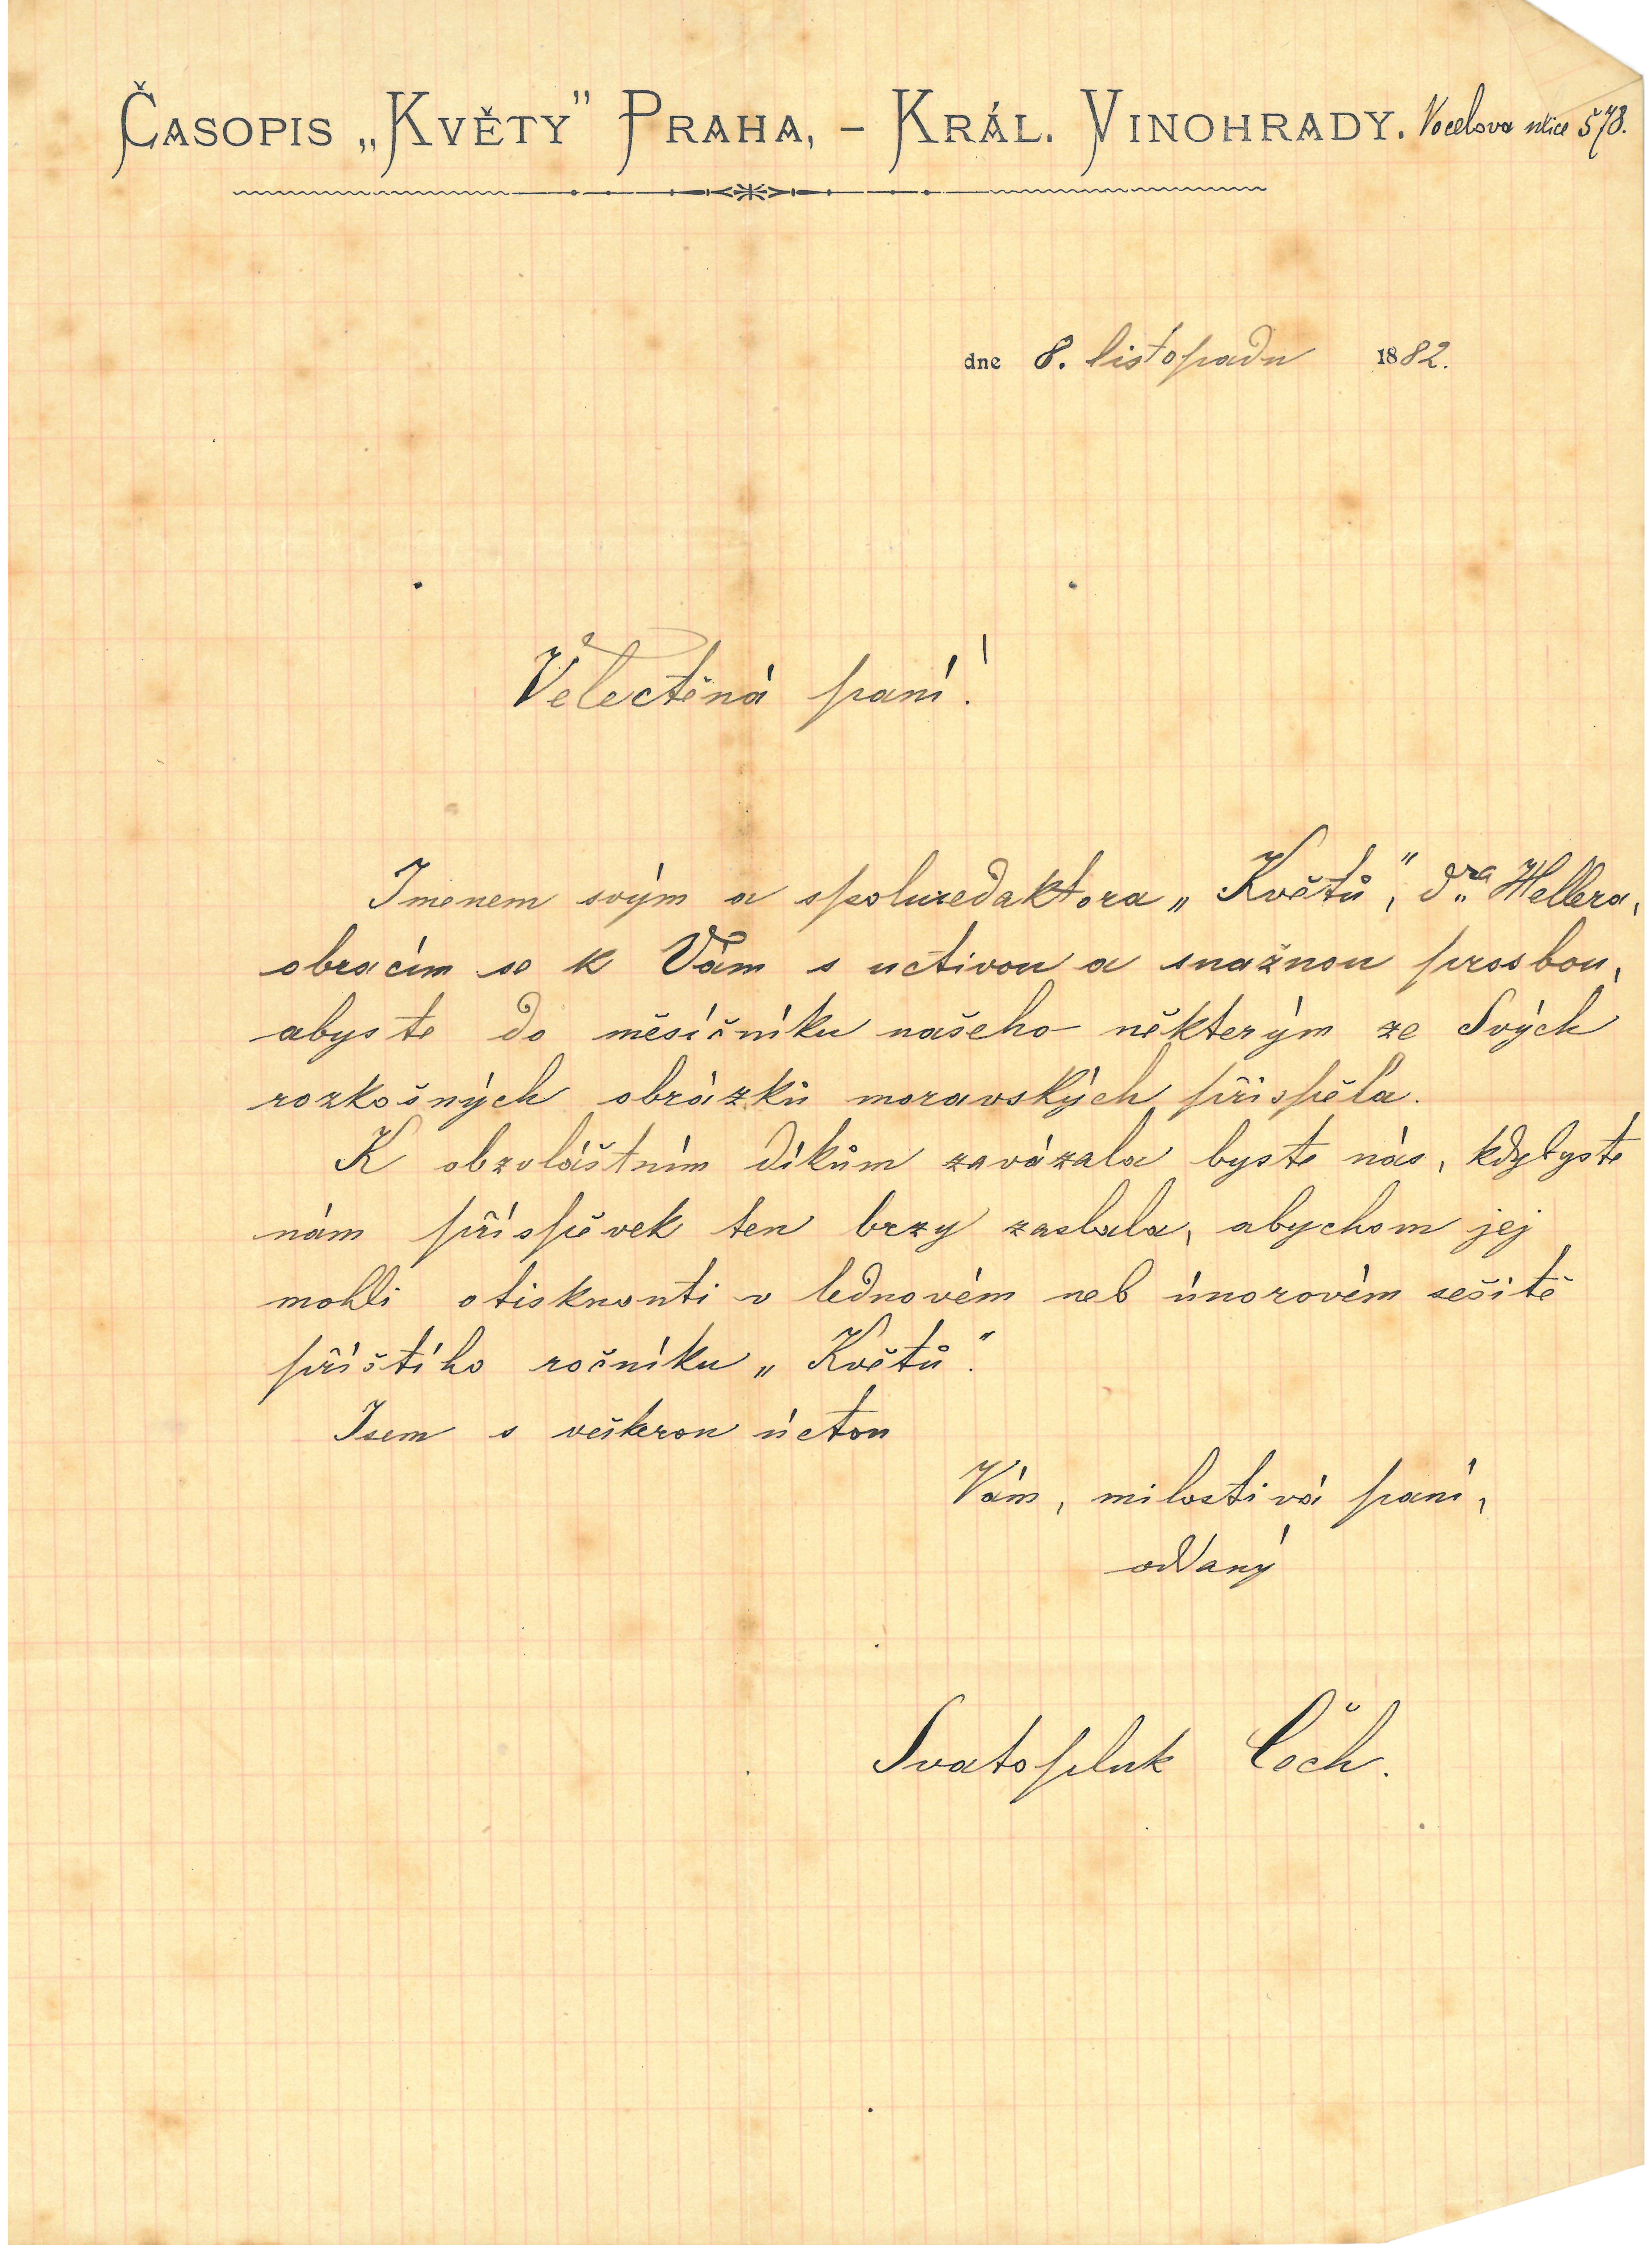 Časopis „Květy" Praha, – Král. Vinohrady. Vocelova ulice 578.
dne 8. listopadu 1882.
Velectěná paní!
Jmenem svým a spoluredaktora „Květů", dra. Hellera,
obracím se k Vám s uctivou a snažnou prosbou,
abyste do měsíčníku našeho některým ze Svých
rozkošných obrázků moravských přispěla.
K obzvláštním díkům zavázala byste nás, kdybyste
nám příspěvek ten brzy zaslala, abychom jej
mohli otisknouti v lednovém neb únorovém sešitě
příštího ročníku „Květů".
Jsem s veškerou úctou
Vám, milostivá paní,
oddaný
Svatopluk Čech.